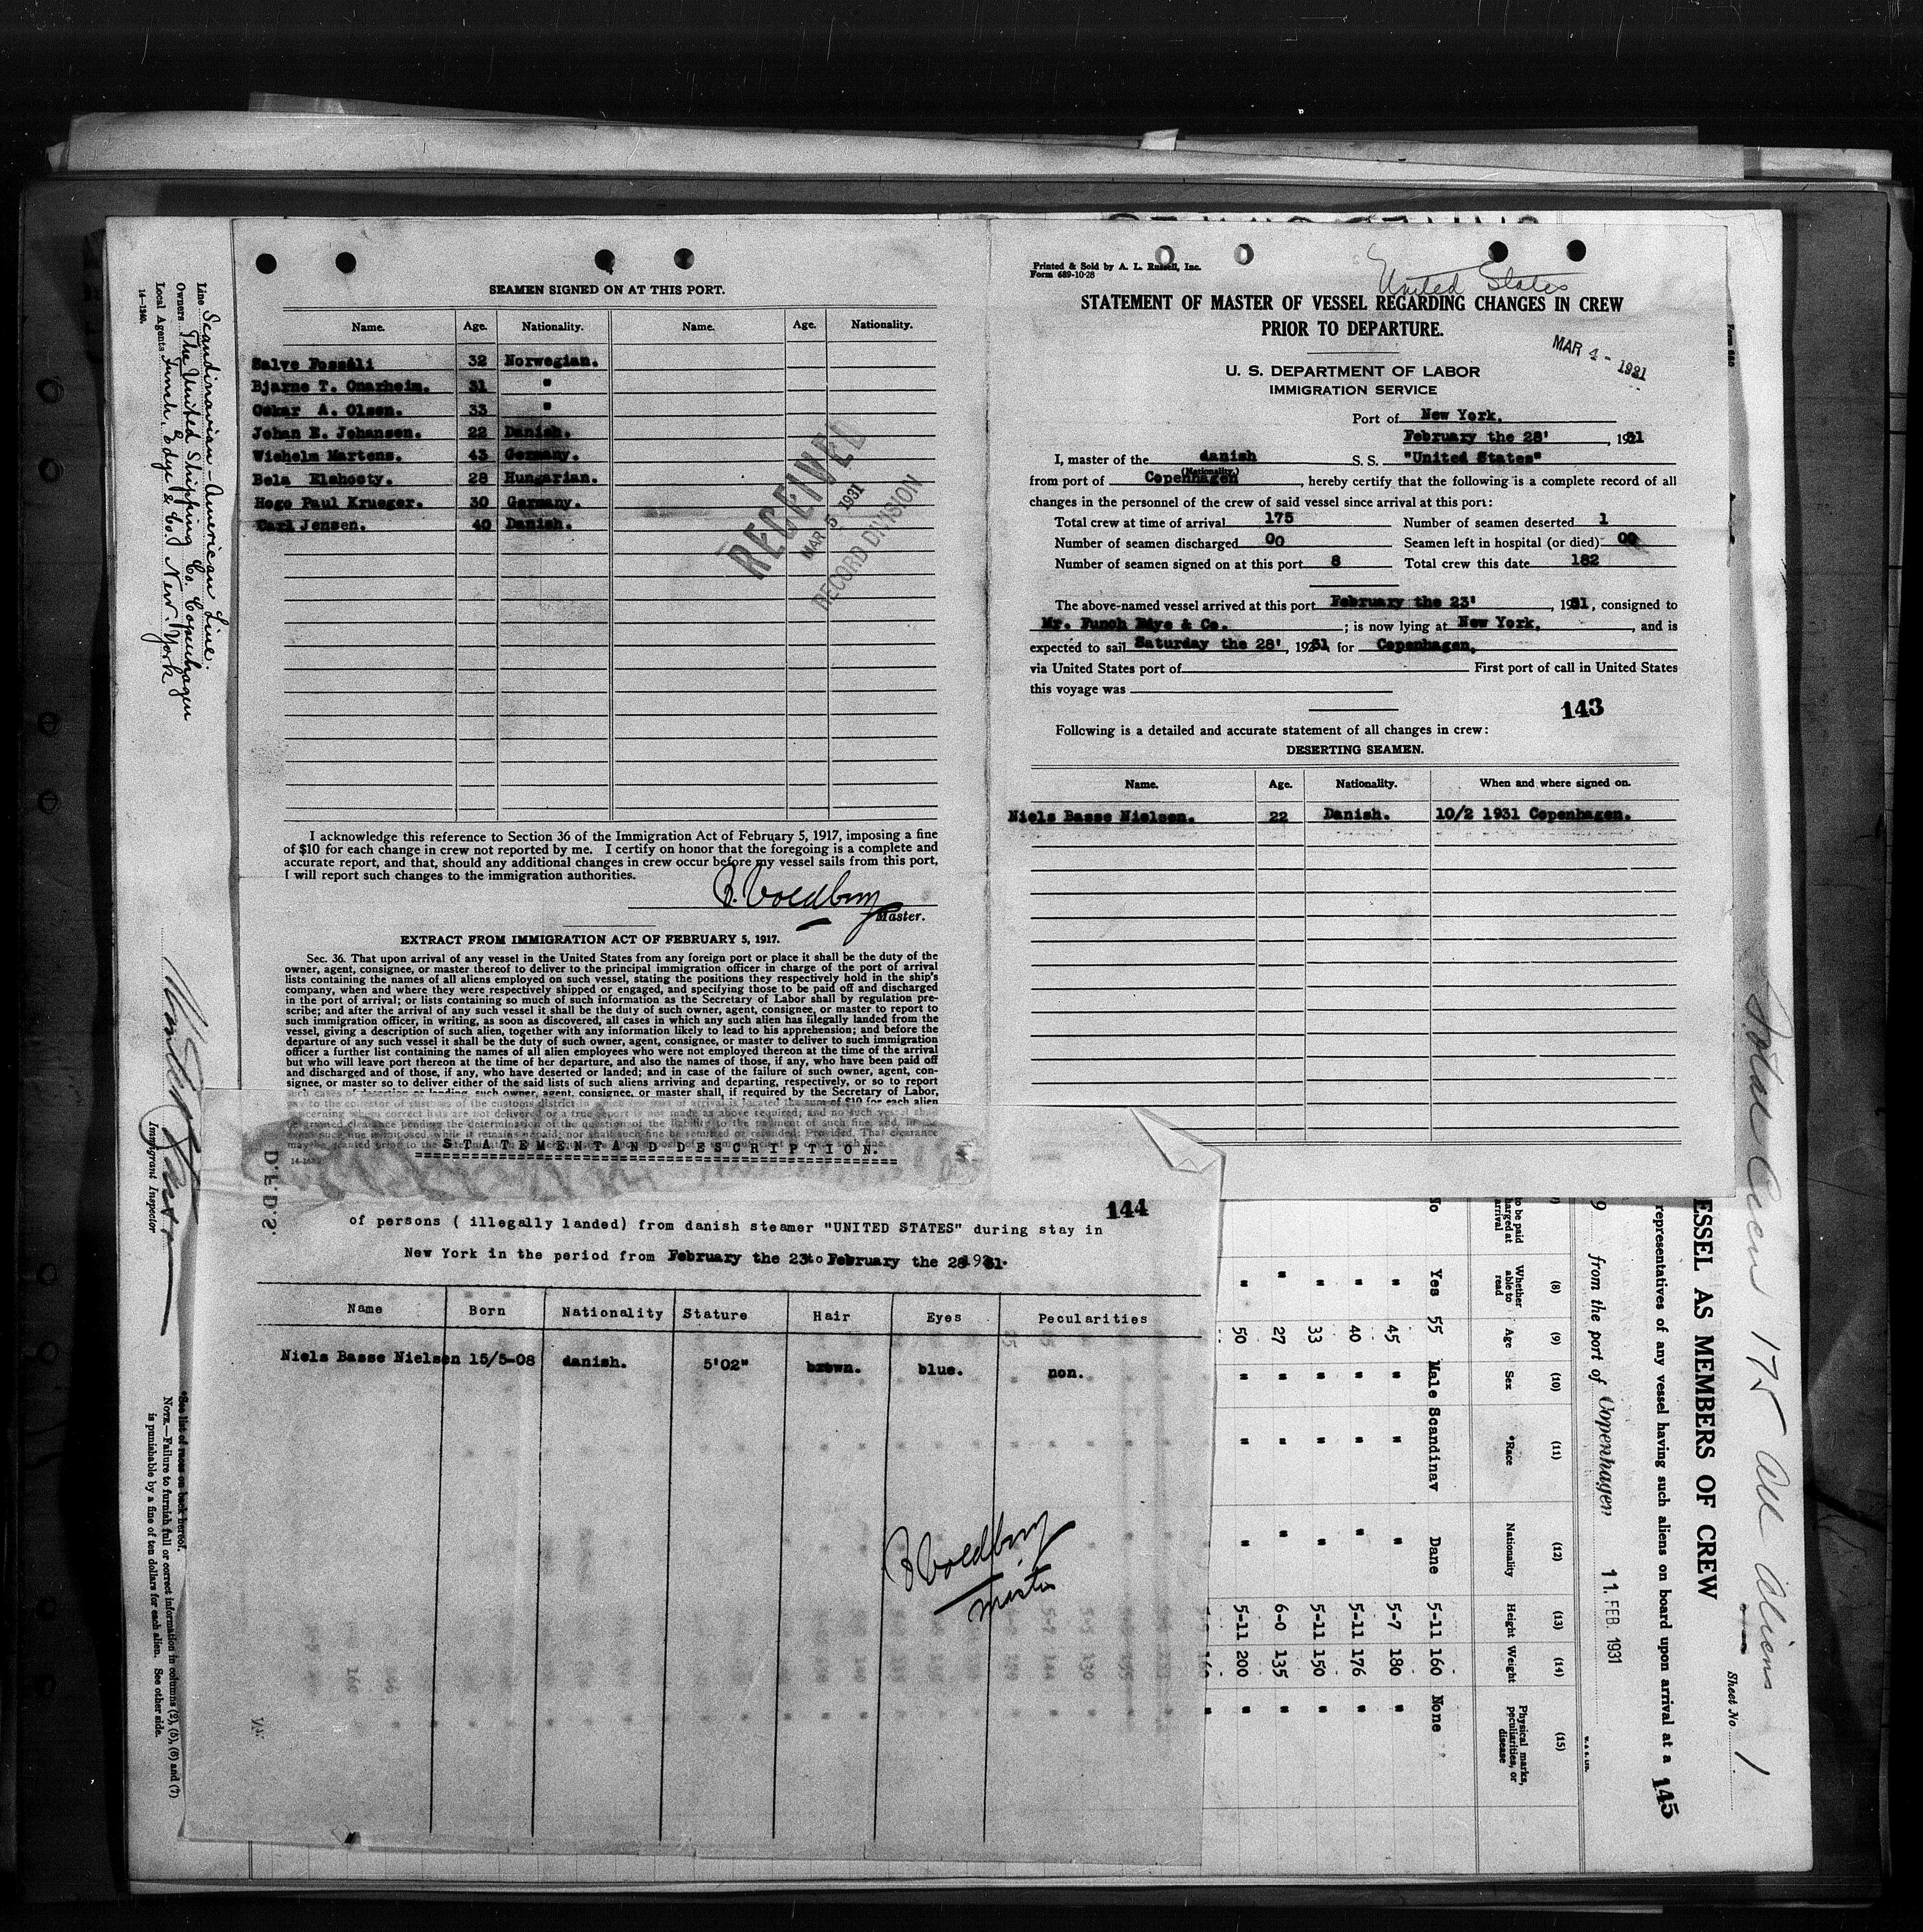 SEAMEN SIGNED ON AT THIS PORT.
Name. Age. Nationality. Name. Age. Nationality.
Salve Fossáli 32 Norwegian.
Bjarne T. Onarheim. 31 "
Oskar A. Olsen. 33 "
Johan E. Johansen. 22 Danish.
Wiehelm Martens. 43 Germany.
Bela Elshoety. 28 Hungarian.
Hogo Paul Krueger. 30 Germany.
Carl Jensen. 40 Danish.
RECEIVED
MAR 5 1931
RECORD DIVISION
I acknowledge this reference to Section 36 of the Immigration Act of February 5, 1917, imposing a fine
of $10 for each change in crew not reported by me. I certify on honor that the foregoing is a complete and
accurate report, and that, should any additional changes in crew occur before my vessel sails from this port,
I will report such changes to the immigration authorities.
Master.
EXTRACT FROM IMMIGRATION ACT OF FEBRUARY 5, 1917.
Sec. 36. That upon arrival of any vessel in the United States from any foreign port or place it shall be the duty of the
owner, agent, consignee, or master thereof to deliver to the principal immigration officer in charge of the port of arrival
lists containing the names of all aliens employed on such vessel, stating the positions they respectively hold in the ship's
company, when and where they were respectively shipped or engaged, and specifying those to be paid off and discharged
in the port of arrival; or lists containing so much of such information as the Secretary of Labor shall by regulation pre-
scribe; and after the arrival of any such vessel it shall be the duty of such owner, agent, consignee, or master to report to
such immigration officer, in writing, as soon as discovered, all cases in which any such alien has illegally landed from the
vessel, giving a description of such alien, together with any information likely to lead to his apprehension; and before the
departure of any such vessel it shall be the duty of such owner, agent, consignee, or master to deliver to such immigration
officer a further list containing the names of all alien employees who were not employed thereon at the time of the arrival
but who will leave port thereon at the time of her departure, and also the names of those, if any, who have been paid off
and discharged and of those, if any, who have deserted or landed; and in case of the failure of such owner, agent, con-
signee, or master so to deliver either of the said lists of such aliens arriving and departing, respectively, or so to report
such cases of desertion or landing, such owner, agent, consignee, or master shall, if required by the Secretary of Labor,
Printed & Sold by A. L. Russell, Inc.
Form 689-10-28
United States
STATEMENT OF MASTER OF VESSEL REGARDING CHANGES IN CREW
PRIOR TO DEPARTURE.
MAR 4 - 1931
U. S. DEPARTMENT OF LABOR
IMMIGRATION SERVICE
Port of New York.
February the 28' , 1931
I, master of the danish S. S. "United States"
(Nationality.)
from port of Copenhagen , hereby certify that the following is a complete record of all
changes in the personnel of the crew of said vessel since arrival at this port:
Total crew at time of arrival 175 Number of seamen deserted 1
Number of seamen discharged 00 Seamen left in hospital (or died) 00
Number of seamen signed on at this port 8 Total crew this date 182
The above-named vessel arrived at this port February the 23' , 1931, consigned to
Mr. Funch Edye & Co. ; is now lying at New York. , and is
expected to sail Saturday the 28' , 1931, for Copenhagen.
via United States port of First port of call in United States
this voyage was
143
Following is a detailed and accurate statement of all changes in crew:
DESERTING SEAMEN.
Name. Age. Nationality. When and where signed on.
Niels Basse Nielsen. 22 Danish. 10/2 1931 Copenhagen.
STATEMENT AND DESCRIPTION.
D.F.D.S.
144
of persons ( illegally landed) from danish steamer "UNITED STATES" during stay in
New York in the period from February the 23 to February the 28 1931.
Name Born Nationality Stature Hair Eyes Pecularities
Niels Basse Nielsen 15/5-08 danish. 5'02" brown. blue. non.
Master
Line Scandinavian-American Line.
Owners The United Shipping Co. Copenhagen
Local Agents Funch, Edye & Co. New York
14—1240.
Immigrant Inspector
*See list of races on back hereof.
NOTE.—Failure to furnish full or correct information in columns (2), (5), (6) and (7)
is punishable by a fine of ten dollars for each alien. See other side.
Total Crew 175 All Aliens
Sheet No. 1
ESSEL AS MEMBERS OF CREW
representatives of any vessel having such aliens on board upon arrival at a 145
9 from the port of Copenhagen 11. FEB. 1931
(8) (9) (10) (11) (12) (13) (14) (15)
to be paid
charged at
arrival
Whether
able to
read
Age Sex *Race Nationality Height Weight
Physical marks,
peculiarities, or
disease
No Yes 55 Male Scandinav Dane 5-11 160 None
" 45 " " " 5-7 180 "
" 40 " " " 5-11 176 "
" 33 " " " 5-11 150 "
" 27 " " " 6-0 135 "
" 50 " " " 5-11 200 "